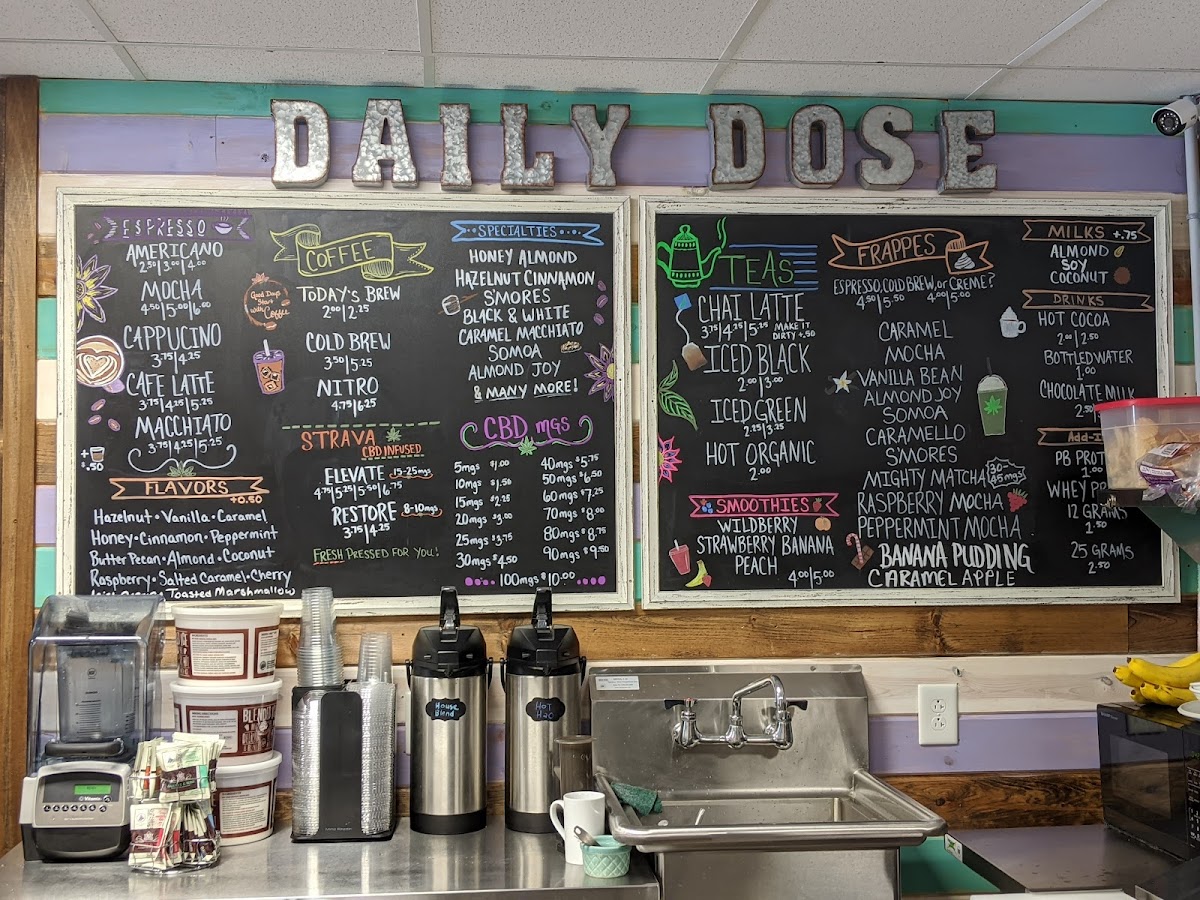 DAILY DOSE
ESPRESSO
AMERICANO
2.50|3.00|4.00
MOCHA
4.50|5.00|6.00
CAPPUCINO
3.75|4.25
CAFE LATTE
3.75|4.25|5.25
MACCHIATO
3.75|4.25|5.25
+
$.50
FLAVORS
+0.50
Hazelnut • Vanilla • Caramel
Honey • Cinnamon • Peppermint
Butter Pecan • Almond • Coconut
Raspberry • Salted Caramel • Cherry
Toasted Marshmallow
COFFEE
Good Days
Start
with
Coffee
TODAY'S BREW
2.00|2.25
COLD BREW
3.50|5.25
NITRO
4.75|6.25
STRAVA
CBD INFUSED
ELEVATE 15-25mgs
4.75|5.25|5.50|6.75
RESTORE 8-10mgs
3.75|4.25
FRESH PRESSED FOR YOU!
SPECIALTIES
HONEY ALMOND
HAZELNUT CINNAMON
S'MORES
BLACK & WHITE
CARAMEL MACCHIATO
SOMOA
ALMOND JOY
& MANY MORE!
CBD MGS
5mgs $1.00
10mgs $1.50
15mgs $2.25
20mgs $3.00
25mgs $3.75
30mgs $4.50
40mgs $5.75
50mgs $6.50
60mgs $7.25
70mgs $8.00
80mgs $8.75
90mgs $9.50
100mgs $10.00
TEAS
CHAI LATTE
3.75|4.25|5.25 MAKE IT
DIRTY +.50
ICED BLACK
2.00|3.00
ICED GREEN
2.25|3.25
HOT ORGANIC
2.00
SMOOTHIES
WILDBERRY
STRAWBERRY BANANA
PEACH
4.00|5.00
FRAPPES
ESPRESSO, COLD BREW, or CREME?
4.50|5.50 4.00|5.00
CARAMEL
MOCHA
VANILLA BEAN
ALMOND JOY
SOMOA
CARAMELLO
SMORES
MIGHTY MATCHA 30-
45mgs
RASPBERRY MOCHA
PEPPERMINT MOCHA
BANANA PUDDING
CARAMEL APPLE
MILKS +.75
ALMOND
SOY
COCONUT
DRINKS
HOT COCOA
2.00|2.50
BOTTLED WATER
1.00
CHOCOLATE MILK
2.50
Add-I
PB PROT
1.00
WHEY PR
12 GRAMS
1.50
25 GRAMS
2.50
House
Blend
HOT
H2O